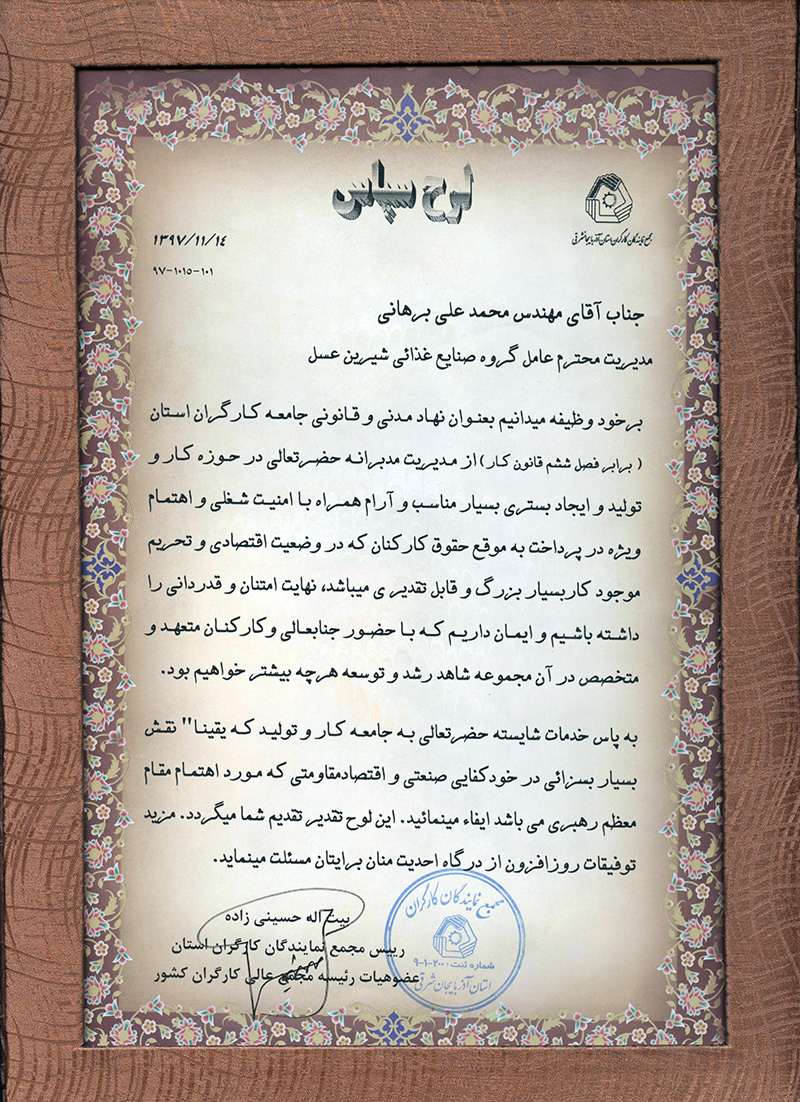 لوح سپاس
مجمع نمایندگان کارگران استان آذربایجانشرقی
۱۳۹۷/۱۱/۱۴
۹۷-۱۰۱۵-۱۰۱
جناب آقای مهندس محمد علی برهانی
مدیریت محترم عامل گروه صنایع غذائی شیرین عسل
برخود وظیفه میدانیم بعنوان نهاد مدنی و قانونی جامعه کارگران استان
( برابر فصل ششم قانون کار) از مدیریت مدبرانه حضرتعالی در حوزه کار و
تولید و ایجاد بستری بسیار مناسب و آرام همراه با امنیت شغلی و اهتمام
ویژه در پرداخت به موقع حقوق کارکنان که در وضعیت اقتصادی و تحریم
موجود کاربسیار بزرگ و قابل تقدیر ی میباشد، نهایت امتنان و قدردانی را
داشته باشیم و ایمان داریم که با حضور جنابعالی وکارکنان متعهد و
متخصص در آن مجموعه شاهد رشد و توسعه هرچه بیشتر خواهیم بود.
به پاس خدمات شایسته حضرتعالی به جامعه کار و تولید که یقینا" نقش
بسیار بسزائی در خودکفایی صنعتی و اقتصادمقاومتی که مورد اهتمام مقام
معظم رهبری می باشد ایفاء مینمائید. این لوح تقدیر تقدیم شما میگردد. مزید
توفیقات روزافزون از درگاه احدیت منان برایتان مسئلت مینماید.
بیت اله حسینی زاده
رییس مجمع نمایندگان کارگران استان
عضوهیات رئیسه مجمع عالی کارگران کشور
مجمع نمایندگان کارگران
شماره ثبت: ۲۰۰-۱-۹
استان آذربایجان شرقی